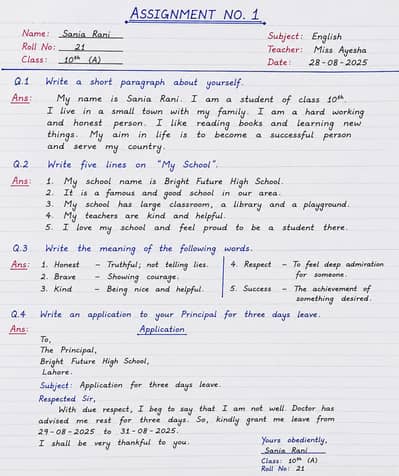 ASSIGNMENT NO. 1
Name: Sania Rani
Subject: English
Roll No: 21
Teacher: Miss Ayesha
Class: 10th (A)
Date: 28-08-2025
Q.1 Write a short paragraph about yourself.
Ans: My name is Sania Rani. I am a student of class 10th.
I live in a small town with my family. I am a hard working
and honest person. I like reading books and learning new
things. My aim in life is to become a successful person
and serve my country.
Q.2 Write five lines on "My School".
Ans: 1. My school name is Bright Future High School.
2. It is a famous and good school in our area.
3. My school has large classroom, a library and a playground.
4. My teachers are kind and helpful.
5. I love my school and feel proud to be a student there.
Q.3 Write the meaning of the following words.
Ans: 1. Honest – Truthful; not telling lies.
2. Brave – Showing courage.
3. Kind – Being nice and helpful.
4. Respect – To feel deep admiration
for someone.
5. Success – The achievement of
something desired.
Q.4 Write an application to your Principal for three days leave.
Ans: Application
To,
The Principal,
Bright Future High School,
Lahore.
Subject: Application for three days leave.
Respected Sir,
With due respect, I beg to say that I am not well. Doctor has
advised me rest for three days. So, kindly grant me leave from
29-08-2025 to 31-08-2025.
I shall be very thankful to you.
Yours obediently,
Sania Rani
Class: 10th (A)
Roll No: 21